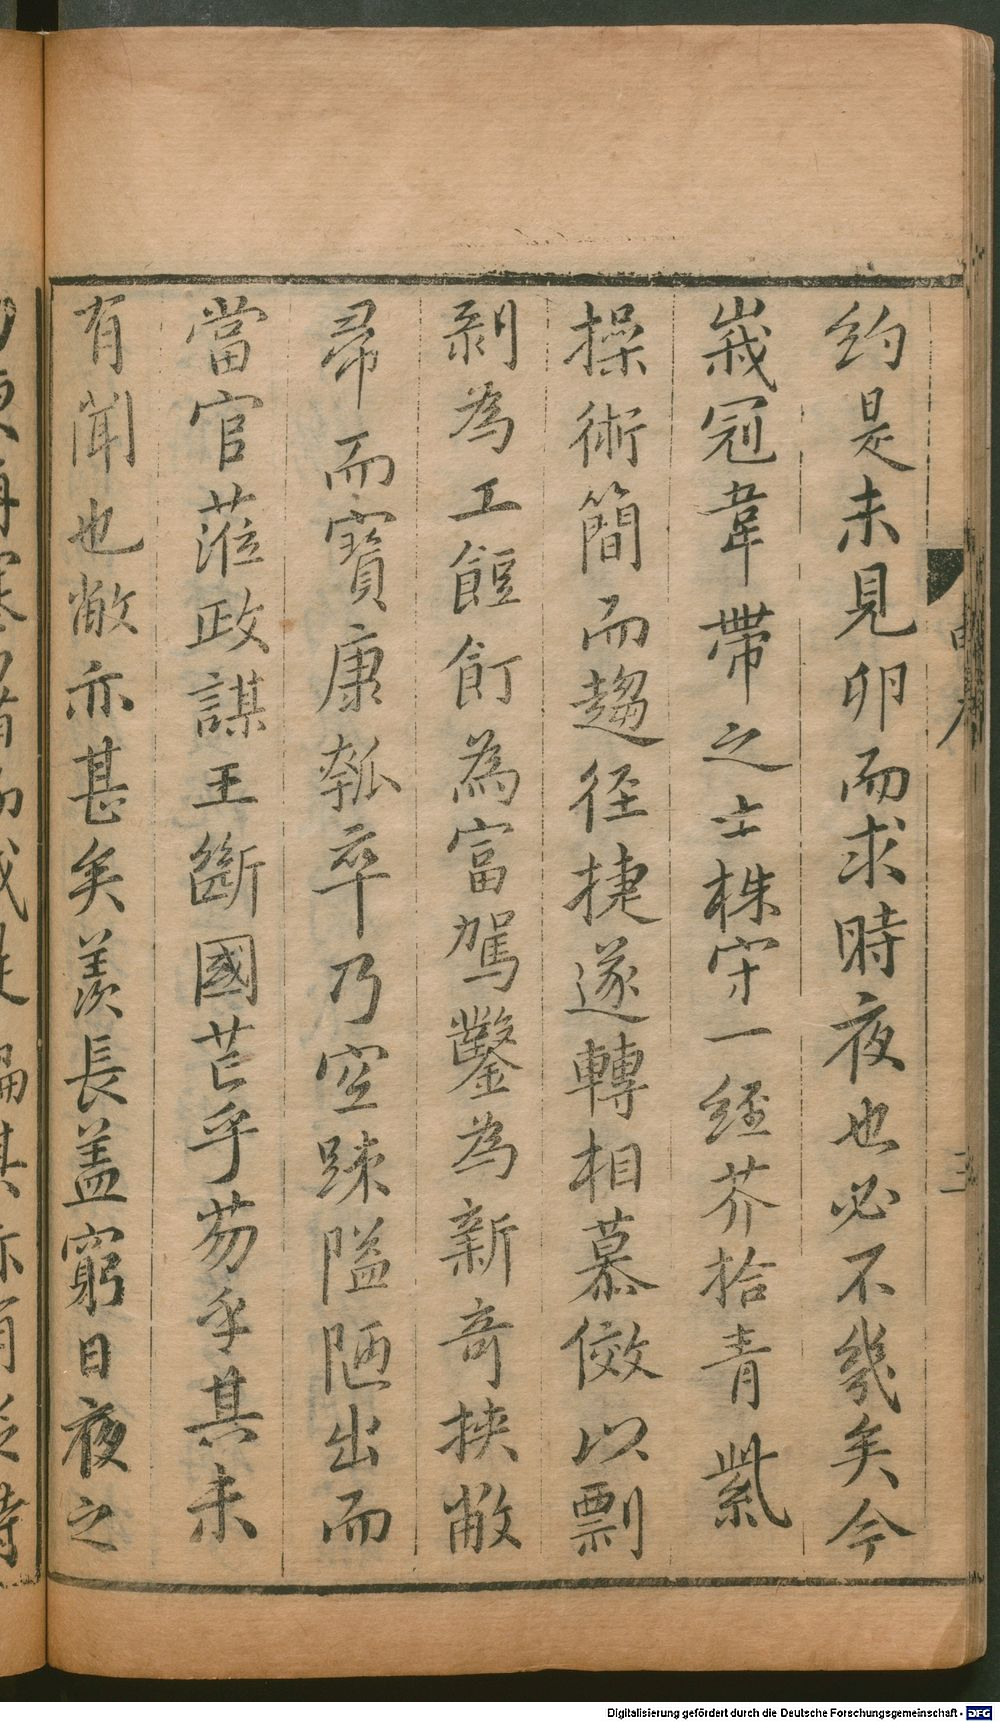 約是未見卵而求時夜也必不幾矣今
峩冠韋帶之士株守一經芥拾青紫
操術簡而趨徑捷遂轉相慕傚以剽
剥為工餖飣為富駕鑿為新奇挾敝
帚而寶康瓠卒乃空踈隘陋出而
當官蒞政謀王斷國芒乎芴乎其未
有聞也敝亦甚矣羨長盖窮日夜之
三
Digitalisierung gefördert durch die Deutsche Forschungsgemeinschaft - DFG